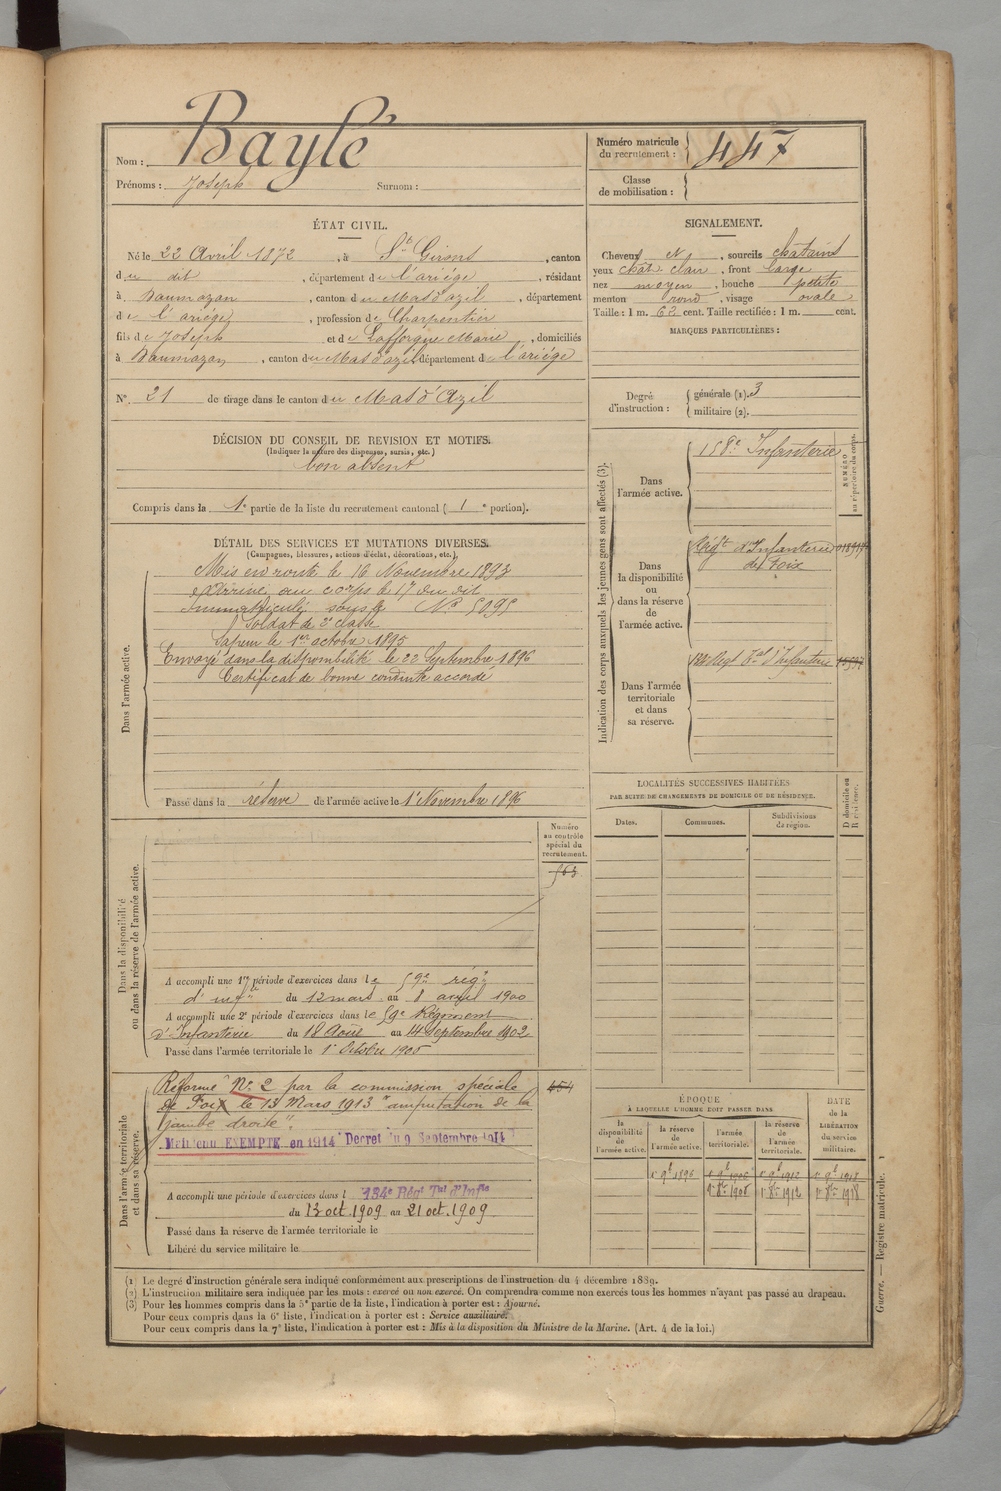 Nom : Baylé
Prénoms : Joseph Surnom :
Numéro matricule du recrutement : 447
Classe de mobilisation :
ÉTAT CIVIL.
Né le 22 Avril 1872, à St Girons, canton
du dit, département de l'ariége, résidant
à Daumazan, canton du Mas d'azil, département
de l'ariége, profession de Charpentier
fils de Joseph et de Lafforgue Marie, domiciliés
à Daumazan, canton du Mas d'azil département de l'ariége
N° 21 de tirage dans le canton du Mas d'Azil
SIGNALEMENT.
Cheveux et, sourcils chatains
yeux chat. clair, front large
nez moyen, bouche petite
menton rond, visage ovale
Taille : 1 m. 62 cent. Taille rectifiée : 1 m. cent.
MARQUES PARTICULIÈRES :
Degré d'instruction : générale (1). 3
militaire (2).
DÉCISION DU CONSEIL DE REVISION ET MOTIFS.
(Indiquer la nature des dispenses, sursis, etc.)
bon absent
Compris dans la 1e partie de la liste du recrutement cantonal (1e portion).
DÉTAIL DES SERVICES ET MUTATIONS DIVERSES.
(Campagnes, blessures, actions d'éclat, décorations, etc.)
Dans l'armée active.
Mis en route le 16 Novembre 1893
arrivé au corps le 17 du dit
Immatriculé sous le No 5095
Soldat de 2e classe
Sapeur le 1er octobre 1895
Envoyé dans la disponibilité le 22 Septembre 1896
Certificat de bonne conduite accordé
Passé dans la réserve de l'armée active le 1r Novembre 1896
Indication des corps auxquels les jeunes gens sont affectés (3).
NUMÉRO au répertoire du corps.
Dans l'armée active.
158e Infanterie
Dans la disponibilité ou dans la réserve de l'armée active.
Régt d'Infanterie
de Foix
Dans l'armée territoriale et dans sa réserve.
Regt Tal d'Infanterie
LOCALITÉS SUCCESSIVES HABITÉES
PAR SUITE DE CHANGEMENTS DE DOMICILE OU DE RÉSIDENCE.
Dates. Communes. Subdivisions de région. D domicile ou R résidence.
Dans la disponibilité ou dans la réserve de l'armée active.
Numéro au contrôle spécial du recrutement.
563
A accompli une 1re période d'exercices dans le 59e régt
d'infrie du 12 mars au 8 avril 1900
A accompli une 2e période d'exercices dans le 59e Régiment
d'Infanterie du 18 Août au 14 Septembre 1902
Passé dans l'armée territoriale le 1r Octobre 1905
Dans l'armée territoriale et dans sa réserve.
454
Réformé N° 2 par la commission spéciale
de Foix le 13 Mars 1913 "amputation de la
jambe droite".
Maintenu EXEMPTÉ en 1914 Décret du 9 Septembre 1914
A accompli une période d'exercices dans l 134e Régt Tal d'Infie
du 13 oct 1909 au 21 oct. 1909
Passé dans la réserve de l'armée territoriale le
Libéré du service militaire le
ÉPOQUE
À LAQUELLE L'HOMME DOIT PASSER DANS
la disponibilité de l'armée active. la réserve de l'armée active. l'armée territoriale. la réserve de l'armée territoriale.
DATE de la LIBÉRATION du service militaire.
1r 9bre 1896 1r 9bre 1906 1r 9bre 1912 1r 9bre 1918
1r 8bre 1905 1r 8bre 1912 1r 8bre 1918
(1) Le degré d'instruction générale sera indiqué conformément aux prescriptions de l'instruction du 4 décembre 1889.
(2) L'instruction militaire sera indiquée par les mots : exercé ou non exercé. On comprendra comme non exercés tous les hommes n'ayant pas passé au drapeau.
(3) Pour les hommes compris dans la 5e partie de la liste, l'indication à porter est : Ajourné.
Pour ceux compris dans la 6e liste, l'indication à porter est : Service auxiliaire.
Pour ceux compris dans la 7e liste, l'indication à porter est : Mis à la disposition du Ministre de la Marine. (Art. 4 de la loi.)
Guerre. — Registre matricule.